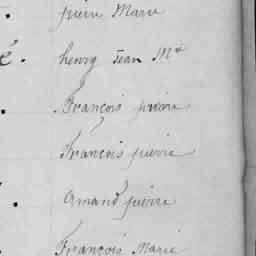 pierre Marie
henry Jean Mie
François pierre
François pierre
amand pierre
François Marie